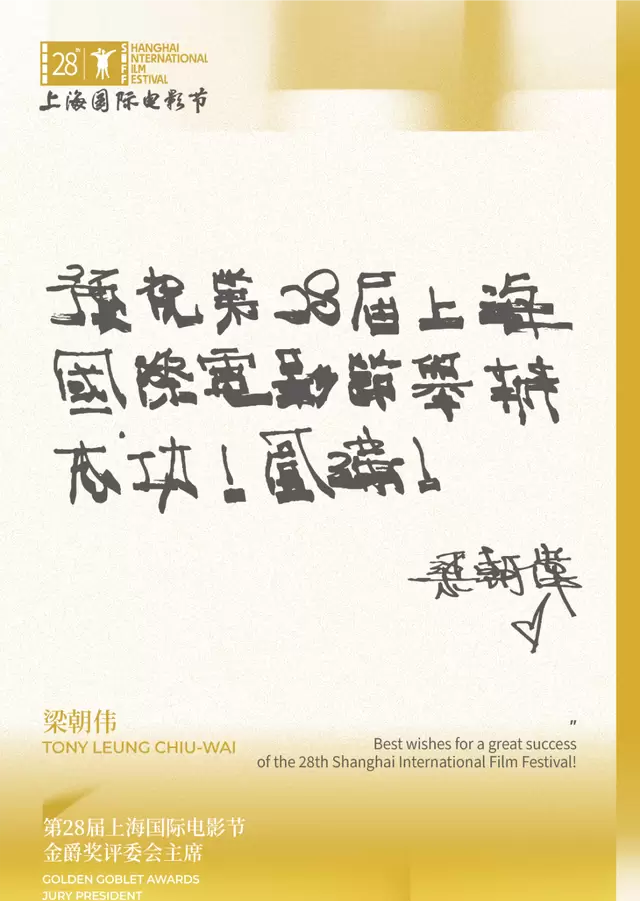 28th
SIFF
SHANGHAI
INTERNATIONAL
FILM
FESTIVAL
上海国际电影节
預祝第28届上海
國際電影節舉辦
成功！圓滿！
梁朝偉
梁朝伟
TONY LEUNG CHIU-WAI
"
Best wishes for a great success
of the 28th Shanghai International Film Festival!
第28届上海国际电影节
金爵奖评委会主席
GOLDEN GOBLET AWARDS
JURY PRESIDENT